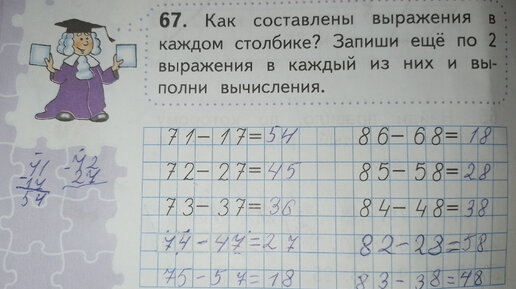 67. Как составлены выражения в
каждом столбике? Запиши ещё по 2
выражения в каждый из них и вы-
полни вычисления.
71-17=54 86-68=18
72-27=45 85-58=28
73-37=36 84-48=38
74-47=27 82-28=58
75-57=18 83-38=48
71 -72
-17 27
54